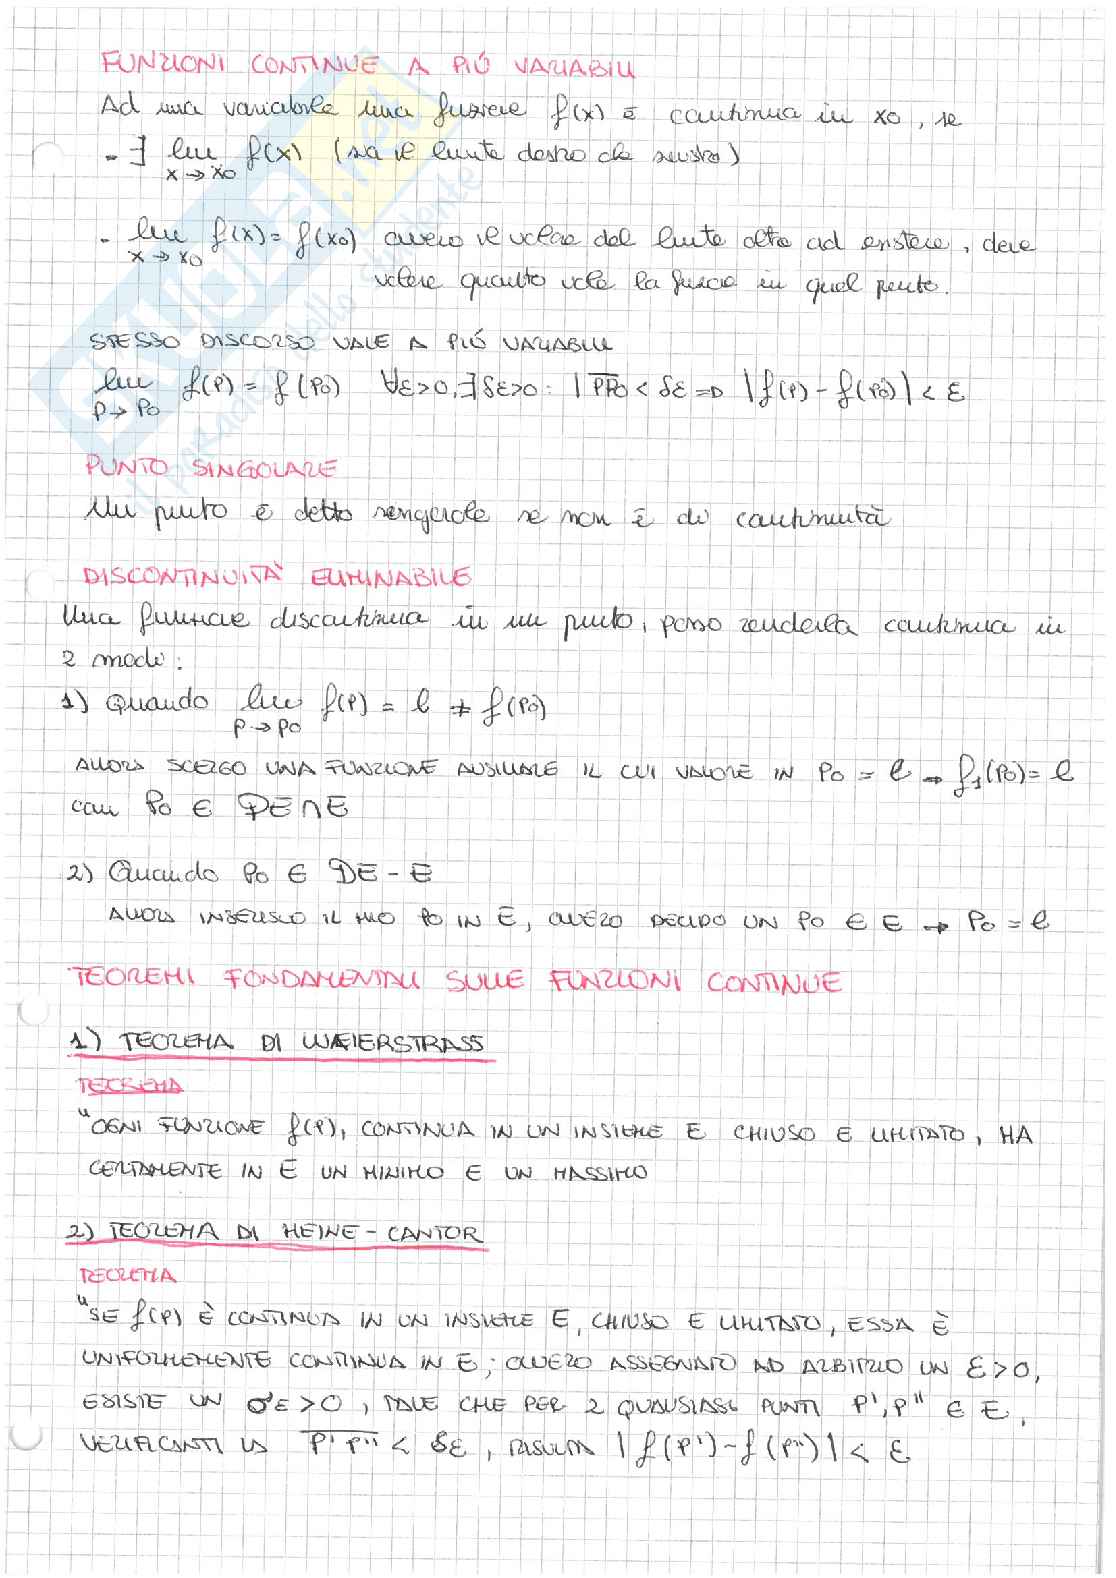 FUNZIONI CONTINUE A PIÚ VARIABILI
Ad una variabile una funzione f(x) è continua in x0, se
- ∃ lim f(x) (sia il limite destro che sinistro)
x → x0
- lim f(x) = f(x0) ovvero il valore del limite oltre ad esistere, deve
x → x0
valere quanto vale la funzione in quel punto.
STESSO DISCORSO VALE A PIÚ VARIABILI
lim f(P) = f(P0) ∀ε>0, ∃ δε>0 : | PP0 < δε => |f(P) - f(P0)| < ε
P → P0
PUNTO SINGOLARE
Un punto è detto singolare se non è di continuità
DISCONTINUITA' ELIMINABILE
Una funzione discontinua in un punto, posso renderla continua in
2 modi :
1) Quando lim f(P) = l ≠ f(P0)
P → P0
ALLORA SCELGO UNA FUNZIONE AUSILIARE IL CUI VALORE IN P0 = l → f1(P0) = l
con P0 ∈ DE ∩ E
2) Quando P0 ∈ DE - E
ALLORA INSERISCO IL MIO P0 IN E, OVVERO DECIDO UN P0 ∈ E → P0 = l
TEOREMI FONDAMENTALI SULLE FUNZIONI CONTINUE
1) TEOREMA DI WEIERSTRASS
TEOREMA
"OGNI FUNZIONE f(P), CONTINUA IN UN INSIEME E CHIUSO E LIMITATO, HA
CERTAMENTE IN E UN MINIMO E UN MASSIMO
2) TEOREMA DI HEINE - CANTOR
TEOREMA
"SE f(P) È CONTINUA IN UN INSIEME E, CHIUSO E LIMITATO, ESSA È
UNIFORMEMENTE CONTINUA IN E; OVVERO ASSEGNATO AD ARBITRIO UN ε>0,
ESISTE UN δε>0, TALE CHE PER 2 QUALSIASI PUNTI P', P'' ∈ E,
VERIFICANTI LA P'P'' < δε, RISULTA |f(P') - f(P'')| < ε